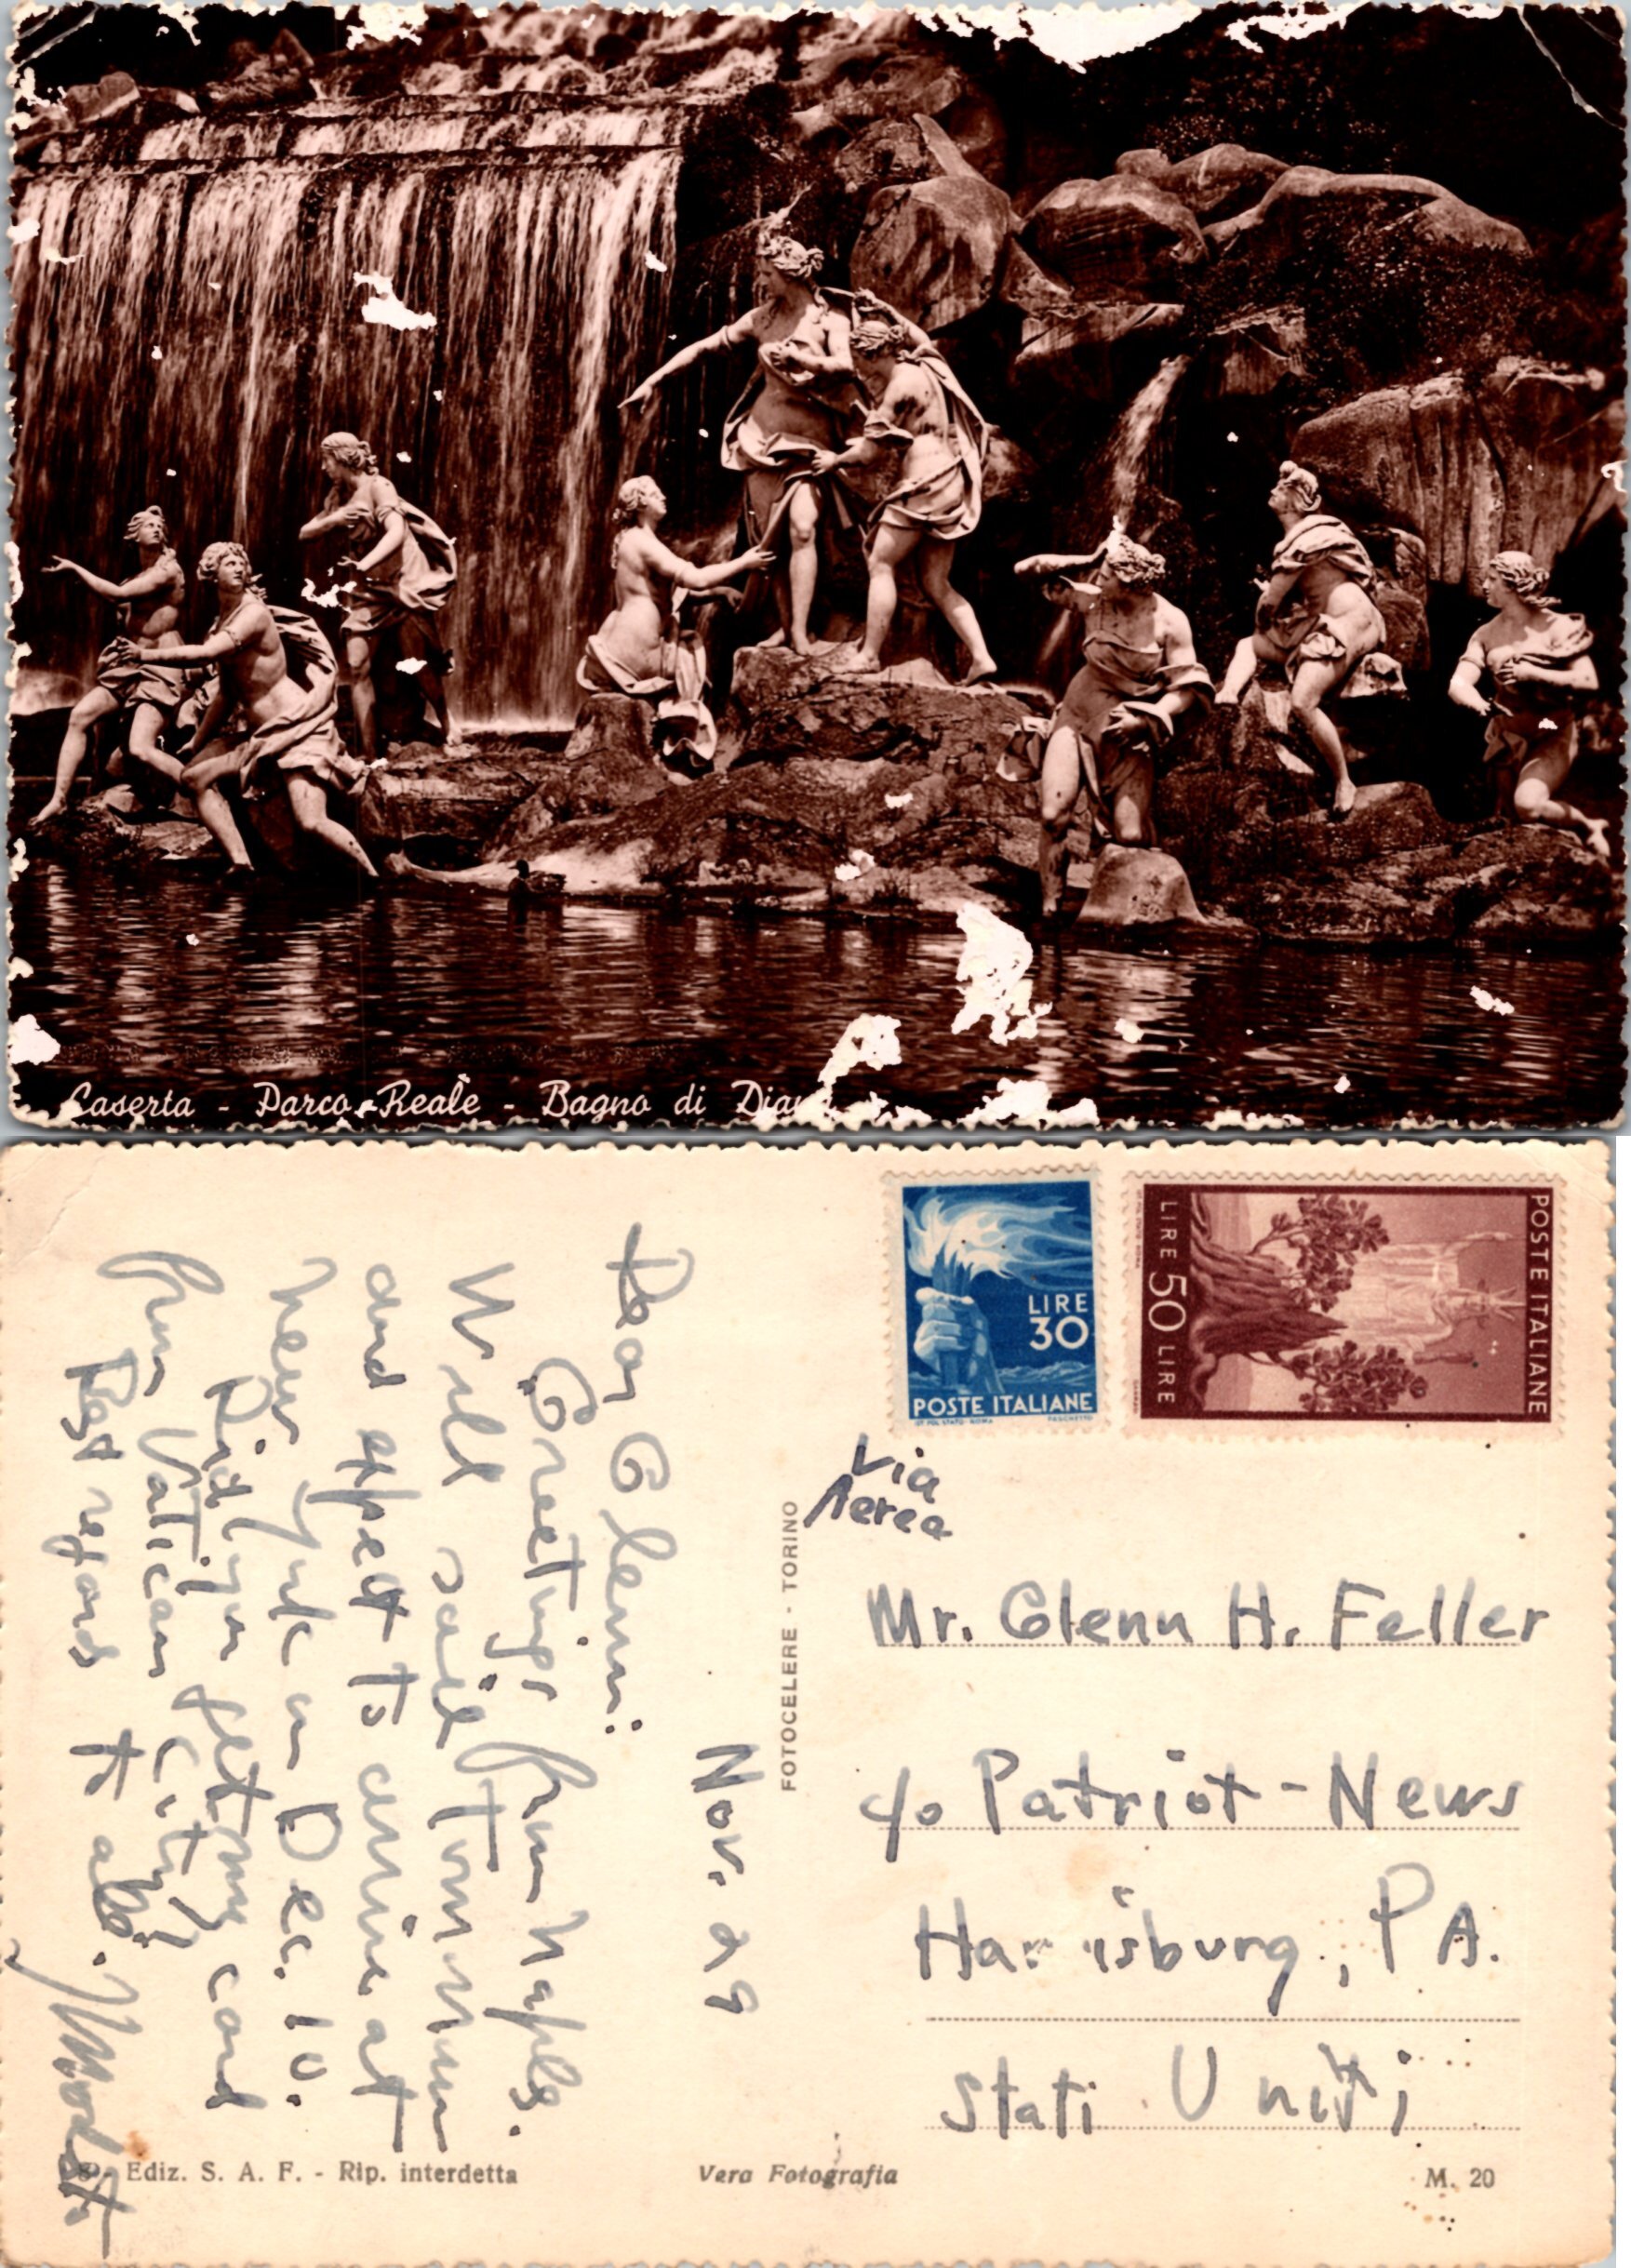 Caserta - Parco Reale - Bagno di
LIRE
30
POSTE ITALIANE
IST. POL. STATO - ROMA
PASCHETTO
POSTE ITALIANE
LIRE 50 LIRE
Via
Aerea
Mr. Glenn H. Feller
c/o Patriot-News
Harrisburg, PA.
Stati Uniti
FOTOCELERE - TORINO
Nov. 29
Dear Glenn:
Greetings from Naples.
Will sail Tomorrow
and expect to arrive at
New York on Dec. 10.
Did you get my card
from Vatican City?
Best regards to all.
Ediz. S. A. F. - Rip. interdetta
Vera Fotografia
M. 20